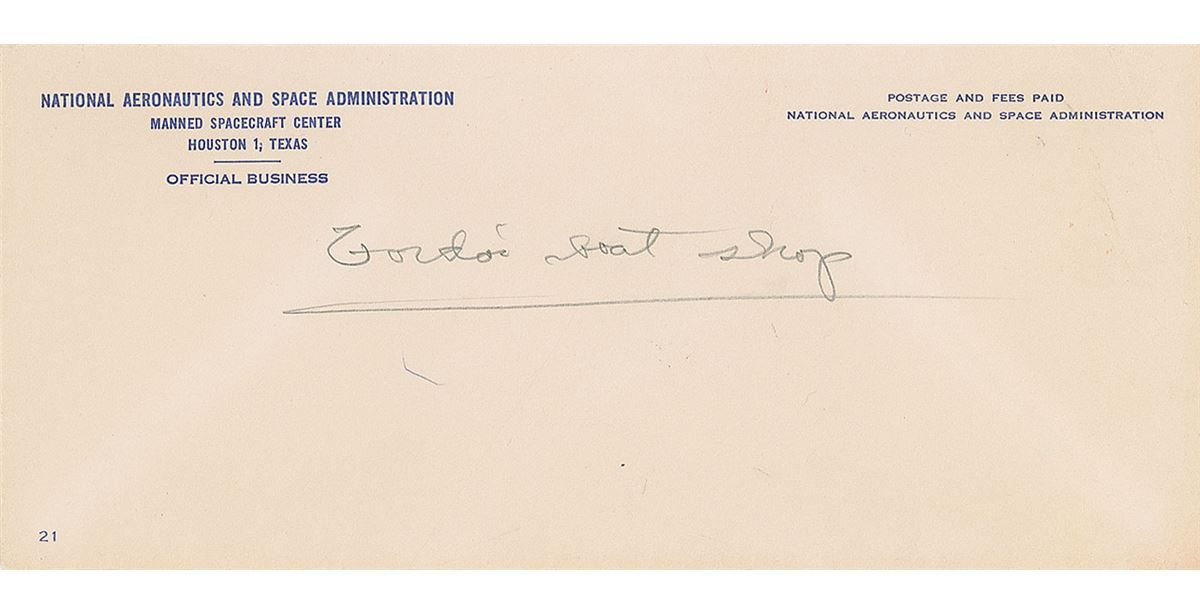 NATIONAL AERONAUTICS AND SPACE ADMINISTRATION
MANNED SPACECRAFT CENTER
HOUSTON 1, TEXAS
OFFICIAL BUSINESS
POSTAGE AND FEES PAID
NATIONAL AERONAUTICS AND SPACE ADMINISTRATION
Gordo's boat shop
21